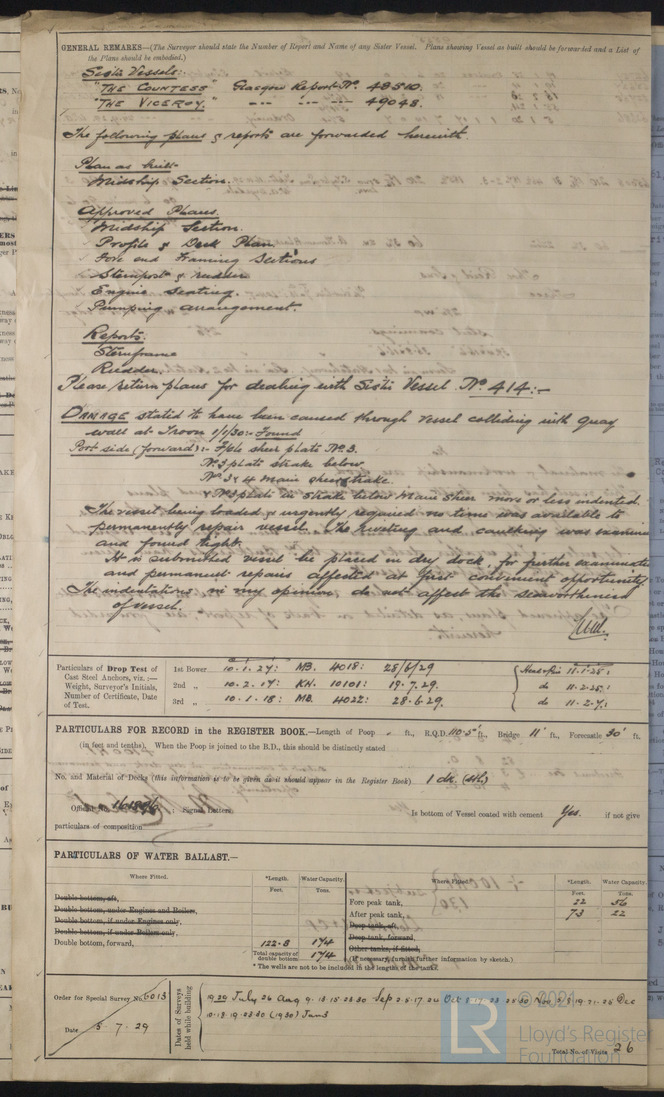 GENERAL REMARKS—(The Surveyor should state the Number of Report and Name of any Sister Vessel. Plans showing Vessel as built should be forwarded and a List of
the Plans should be embodied.)
Sister Vessels:
"THE COUNTESS" Glasgow Report No. 48510.
"THE VICEROY." -- --- --- 49048.
The following plans & reports are forwarded herewith.
Plan as built
Midship Section.
Approved Plans.
Midship Section.
Profile & Deck Plan
Fore end Framing Sections
Sternpost & rudder
Engine Seating.
Pumping arrangement.
Reports.
Sternframe
Rudder.
Please return plans for dealing with Sister Vessel No. 414:-
DAMAGE stated to have been caused through vessel colliding with quay
wall at Troon 1/1/30:- Found
Port side (forward):- F/sle sheer plate No 3.
No 3 plate strake below.
No 3 & 4 Main sheerstrake.
& No 3 plate in Strake below Main Sheer more or less indented.
The vessel being loaded & urgently required no time was available to
permanently repair vessel. The riveting and caulking was examined
and found tight.
It is submitted vessel be placed in dry dock for further examination
and permanent repairs affected at first convenient opportunity
The indentations in my opinion do not affect the seaworthiness
of vessel.
Particulars of Drop Test of
Cast Steel Anchors, viz.:—
Weight, Surveyor's Initials,
Number of Certificate, Date
of Test.
1st Bower 10.1.27: MB. 4018: 28/6/29
2nd " 10.2.17: KH. 10101: 19.7.29.
3rd " 10.1.18: MB. 4022: 28.6.29.
Head & Pin 11.1.25:
do 11.2.25:
do 11.2.7:
PARTICULARS FOR RECORD in the REGISTER BOOK.—Length of Poop - ft., R.Q.D. 110.5 ft., Bridge 11 ft., Forecastle 30 ft.
(in feet and tenths). When the Poop is joined to the B.D., this should be distinctly stated
No. and Material of Decks (this information is to be given as it should appear in the Register Book) 1 dk. (stl)
Official No. ; Signal Letters Is bottom of Vessel coated with cement Yes. if not give
particulars of composition
PARTICULARS OF WATER BALLAST.—
Where Fitted. *Length. Water Capacity. Where Fitted. *Length. Water Capacity.
Feet. Tons. Feet. Tons.
Double bottom, aft, Fore peak tank, 22 56
Double bottom, under Engines and Boilers, After peak tank, 73 22
Double bottom, if under Engines only, Deep tank, aft,
Double bottom, if under Boilers only, Deep tank, forward,
Double bottom, forward, 122.8 174 Other tanks, if fitted,
Total capacity of double bottom 174 (If necessary, furnish further information by sketch.)
* The wells are not to be included in the lengths of the tanks.
Order for Special Survey No. 6013
Date 5.7.29
Dates of Surveys held while building
1929 July 26 Aug 9.13.15.23.30 Sep 2.5.17.24 Oct 23.30 Nov 19.21.25 Dec
10.18.19.23.30 (1930) Jan 3
Total No. of Visits 26
© 2021
LR
Lloyd's Register
Foundation